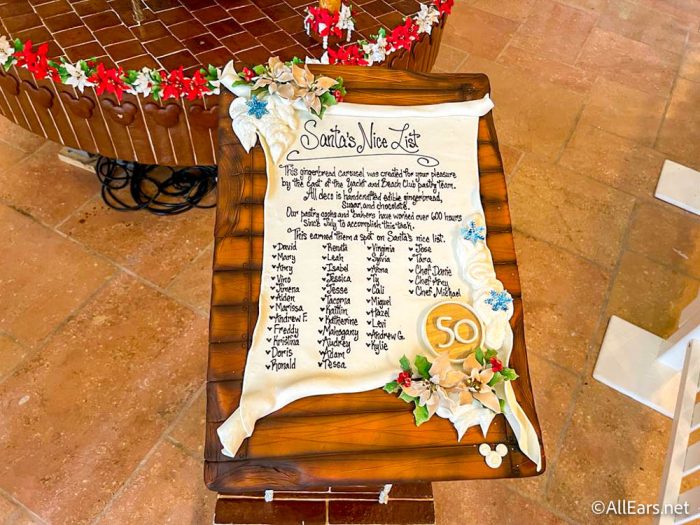 Santa's Nice List
This gingerbread Carousel was created for your pleasure
by the Cast of the Yacht and Beach Club pastry team.
All deco is handcrafted edible gingerbread,
sugar, and chocolate.
Our pastry cooks and bakers have worked over 600 hours
since July to accomplish this task.
This earned them a spot on Santa's nice list.
David
Mary
Amy
Vino
Jimena
Aiden
Marissa
Andrew F.
Freddy
Kristina
Doris
Ronald
Renuta
Leah
Isabel
Jessica
Jesse
Taconia
Kaitlin
Katherine
Mahogany
Audrey
Adam
Tessa
Virginia
Sylvia
Anna
Ty
Cali
Miguel
Hazel
Levi
Andrew G.
Kylie
Jose
Tara
Chef Danie
Chef Amy
Chef Michael
50
©AllEars.net